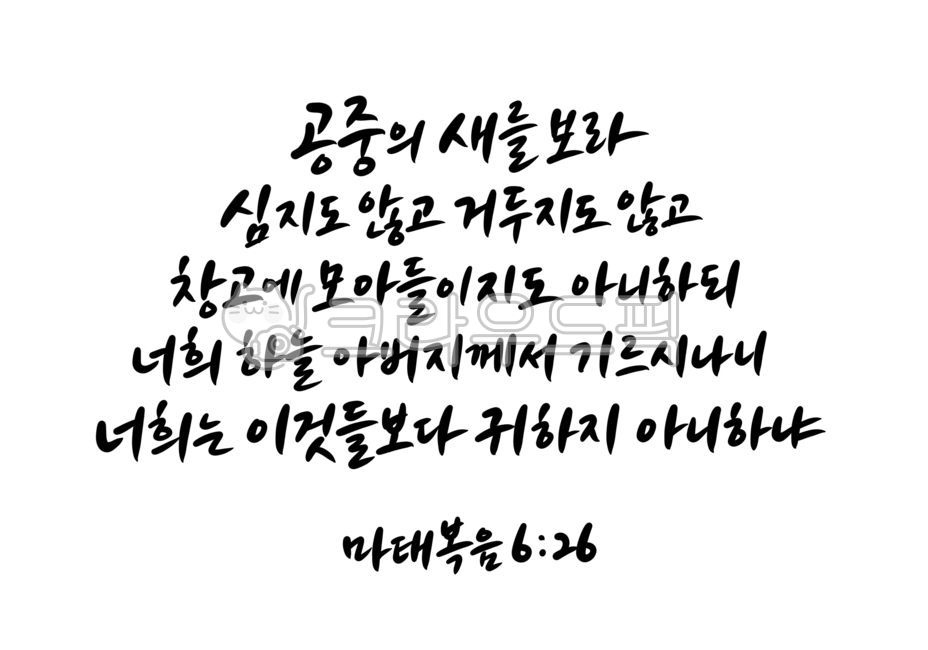 공중의 새를 보라
심지도 않고 거두지도 않고
창고에 모아들이지도 아니하되
너희 하늘 아버지께서 기르시나니
너희는 이것들보다 귀하지 아니하냐
마태복음 6:26
크라우드픽